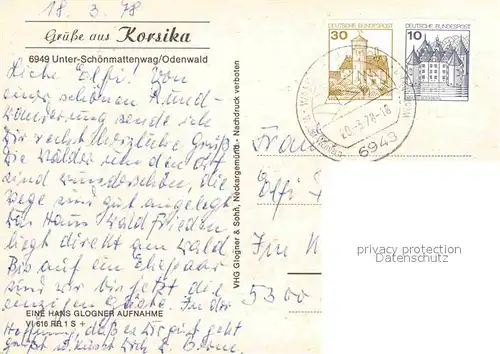 18.3.78
Grüße aus Korsika
6949 Unter-Schönmattenwag/Odenwald
Liebe Elfi! Von
einer schönen Rund-
wanderung sende ich
Dir recht herzliche Grüße
Die Wälder um den Ort
sind wunderschön, die
Wege sind gut angelegt
Das Haus Waldfrieden
liegt direkt am Wald
Bis auf ein Ehepaar
sind wir bis jetzt die
einzigen Gäste. In der
EINE HANS GLOGNER AUFNAHME
VI 616 RB 1 S +
Hoffnung, daß es Dir gut geht
grüßt u. küsst Dich
VHG Glogner & Sohn, Neckargemünd - Nachdruck verboten
DEUTSCHE BUNDESPOST
30
DEUTSCHE BUNDESPOST
10
20.-3.78-18
6943
Frau
Elfi
Im
5300
privacy protection
Datenschutz